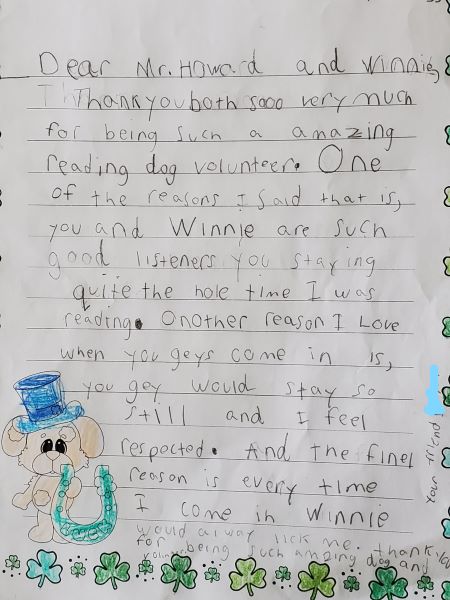 Dear Mr. Howard and Winnie,
Thank you both sooo very much
for being such a amazing
reading dog volunteer. One
of the reasons I said that is,
you and Winnie are such
good listeners you staying
quite the hole time I was
reading. Onother reason I Love
when you geys come in is,
you gey would stay so
still and I feel
respected. And the finel
reason is every time
I come in Winnie
would alway lick me. thank you
for being such amzing dog and
Your friend